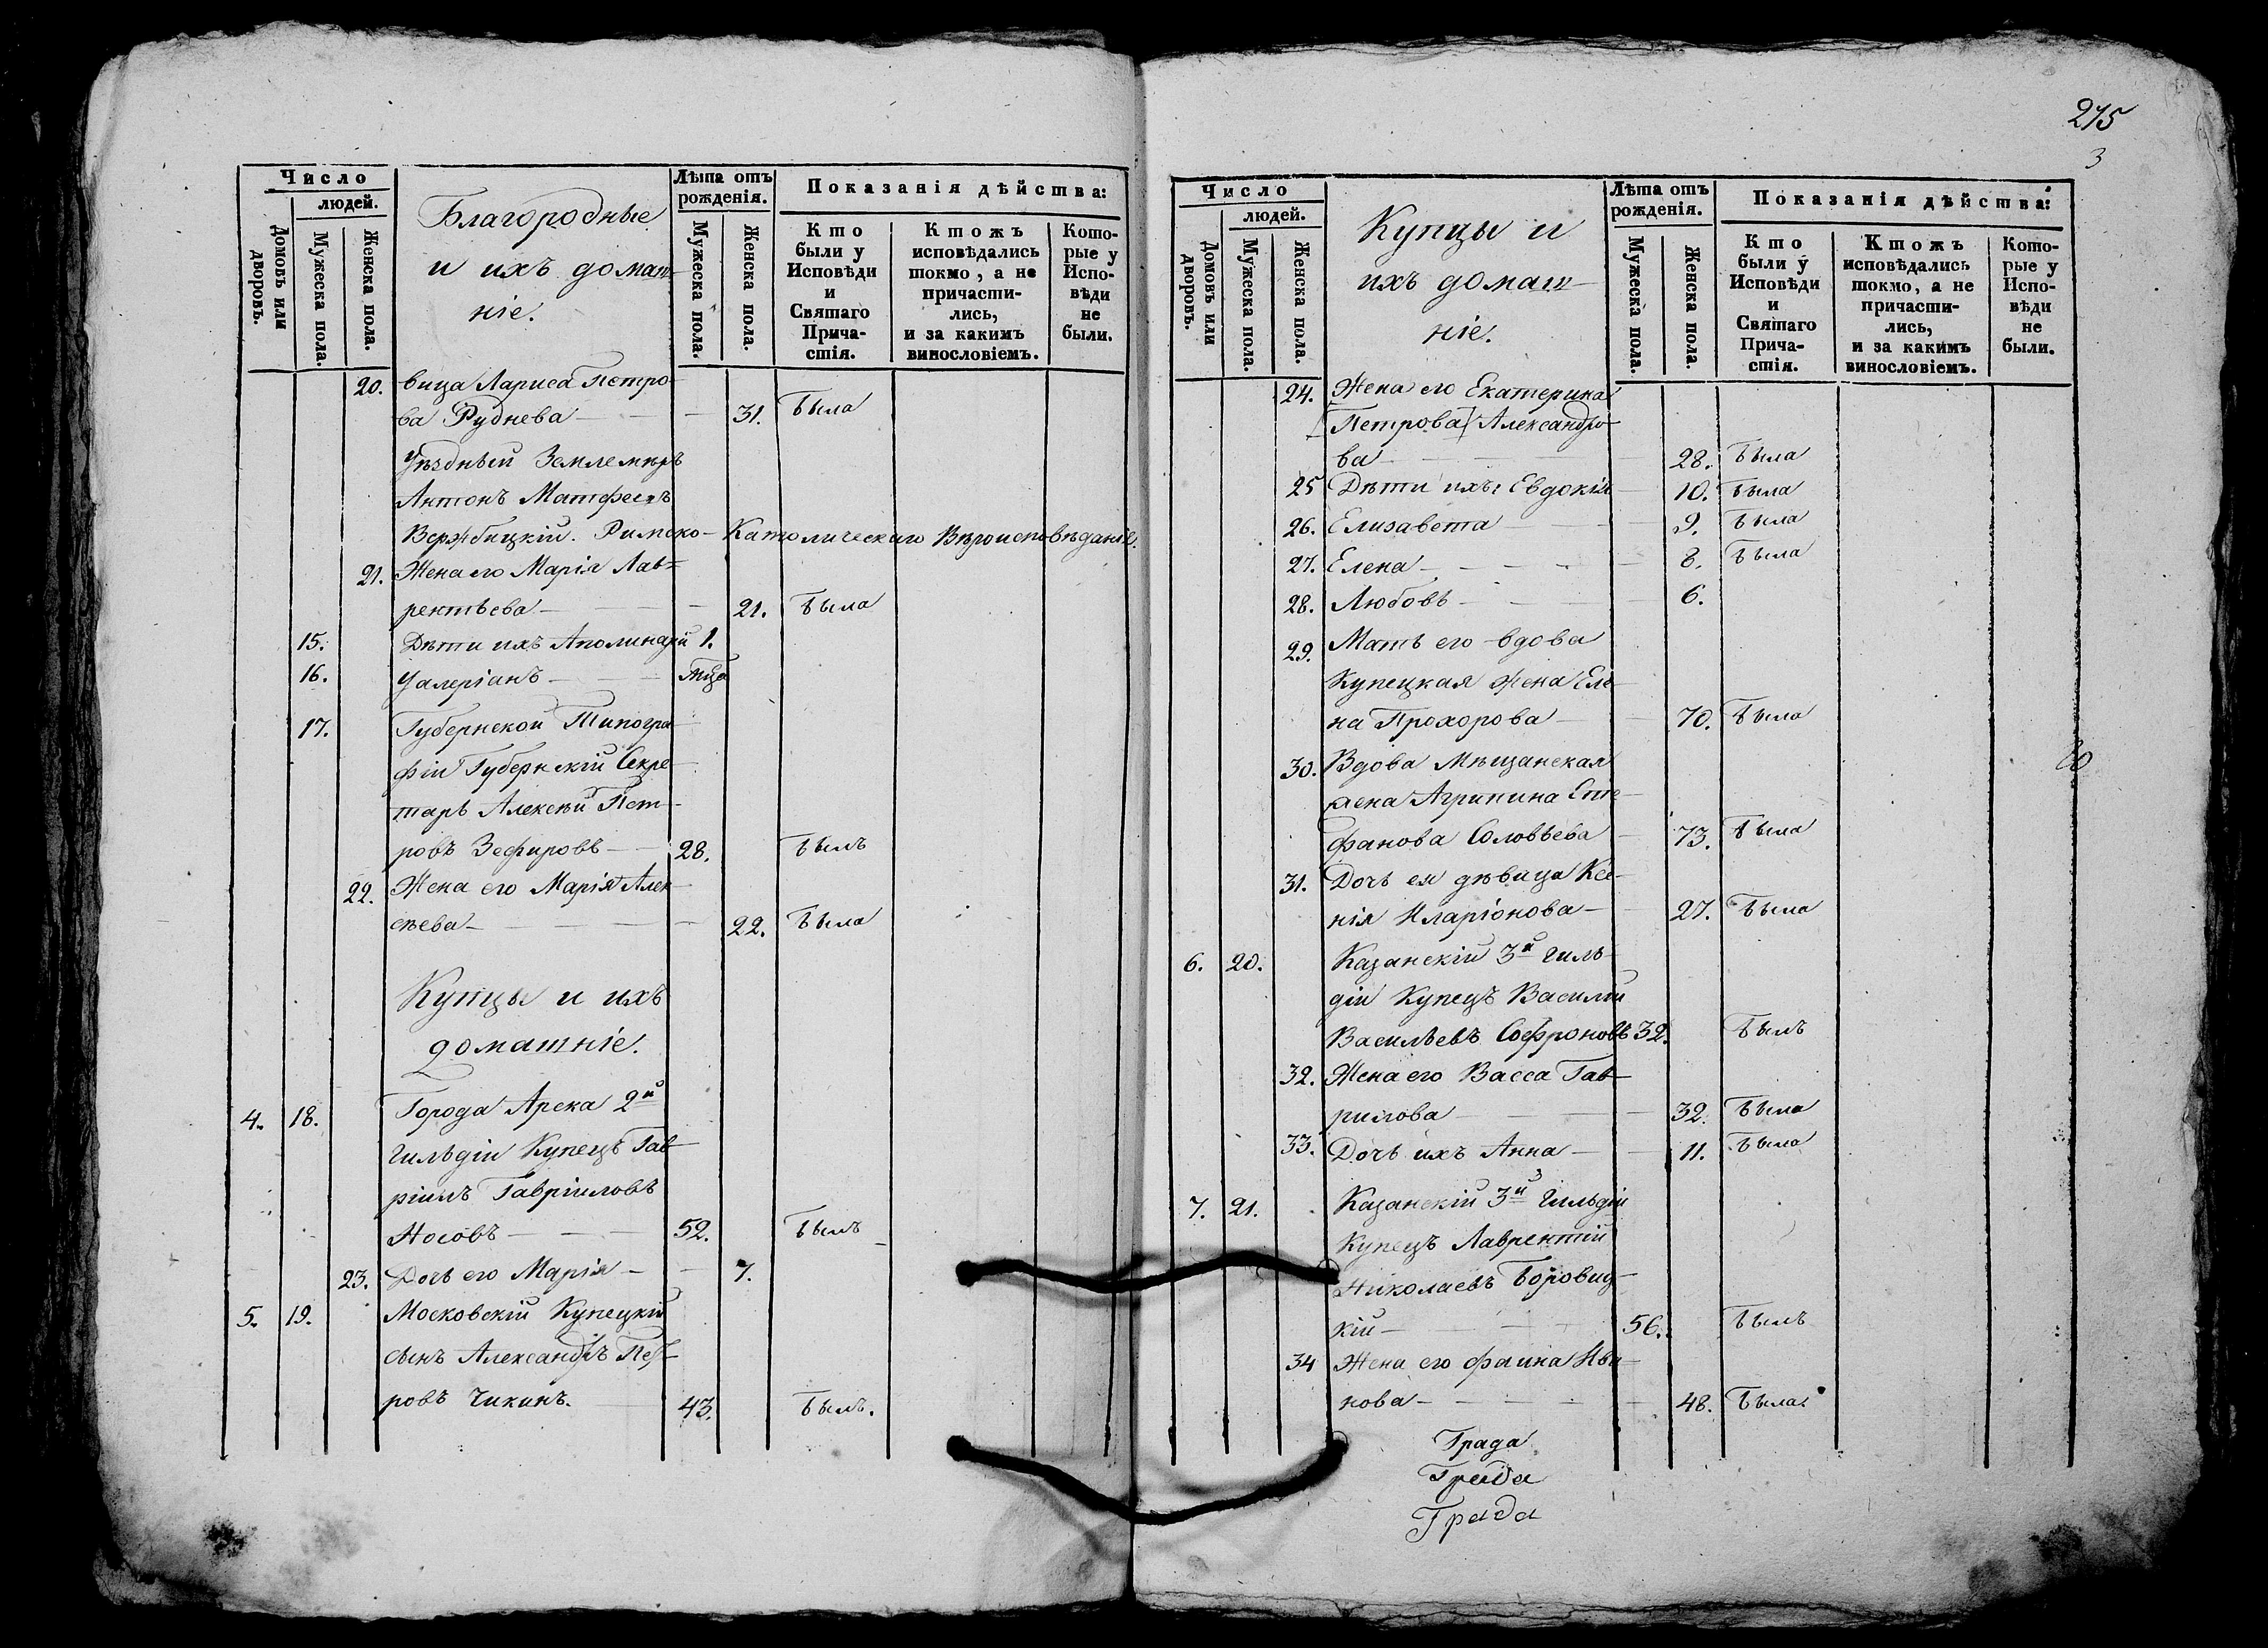 Число
людей.
Домовъ или дворовъ.
Мужеска пола.
Женска пола.
Благородные
и ихъ домаш-
ніе.
Лѣта отъ
рожденія.
Мужеска пола.
Женска пола.
Показанія дѣйства:
Кто
были у
Исповѣди
и
Святаго
Прича-
стія.
Ктожъ
исповѣдались
токмо, а не
причасти-
лись,
и за какимъ
винословіемъ.
Кото-
рые у
Испо-
вѣди
не
были.
20. вица Лариса Петро-
ва Руднева — 31. Была
Уѣздный Землемѣръ
Антонъ Матфеевъ
Вержбицкій. Римско-Католическаго Вѣроисповѣданія.
21. Жена его Марія Лав-
рентьева — 21. Была
15. Дѣти ихъ Аполинарій 1.
16. Уалеріанъ —
17. Губернской Типогра-
фіи Губернскій Секре-
тарь Алексѣй Пет-
ровъ Зефировъ — 28. Былъ
22. Жена его Марія Алек-
сѣева — 22. Была
Купцы и ихъ
домашніе.
4. 18. Города Арска 2й
Гильдіи Купецъ Гав-
ріилъ Гавріиловъ
Носовъ — 52. Былъ
23. Дочь его Марія — 7.
5. 19. Московскій Купецкій
сынъ Александръ Пет-
ровъ Чикинъ. 43. Былъ.
275
3
Число
людей.
Домовъ или дворовъ.
Мужеска пола.
Женска пола.
Купцы и
ихъ домаш-
ніе.
Лѣта отъ
рожденія.
Мужеска пола.
Женска пола.
Показанія дѣйства:
Кто
были у
Исповѣди
и
Святаго
Прича-
стія.
Ктожъ
исповѣдались
токмо, а не
причасти-
лись,
и за какимъ
винословіемъ.
Кото-
рые у
Испо-
вѣди
не
были.
24. Жена его Екатерина
[Петрова] Александро-
ва — 28. Была
25 Дѣти ихъ: Евдокія — 10. Была
26. Елизавета — 9. Была
27. Елена — 8. Была
28. Любовь — 6.
29. Мать его вдова
Купецкая жена Еле-
на Прохорова — 70. Была
30. Вдова Мѣщанская
жена Агрипина Епи-
фанова Соловьева — 73. Была
31. Дочь ея дѣвица Ксе-
нія Иларіонова — 27. Была
6. 20. Казанскій 3й Гиль-
діи Купецъ Василій
Васильевъ Софроновъ 32. Былъ
32. Жена его Васса Гав-
рилова — 32. Была
33. Дочь ихъ Анна — 11. Была
7. 21. Казанскій 3й Гильдіи
Купецъ Лаврентій
Николаевъ Боровиц-
кій — 56. Былъ
34 Жена его Фаина Ива-
нова — 48. Была
Града
Града
Града